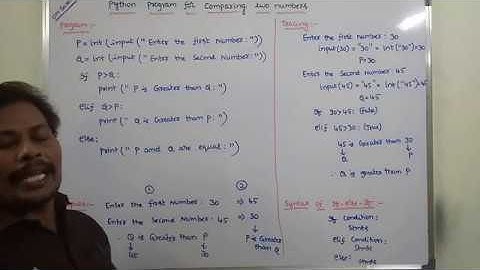 Python Program for Comparing two numbers
Program:-
P=int(input("Enter the first Number:"))
Q=int(input("Enter the Second Number:"))
if P>Q:
print("P is Greater than Q:")
elif Q>P:
print("Q is Greater than P:")
else:
print("P and Q are equal:")
① ②
Enter the first Number: 30 ⇒ 45
Enter the Second Number: 45 ⇒ 30
∴ Q is Greater than P
↓ ↓
45 30
P is Greater than Q
Tracing:-
Enter the first Number: 30
input(30) = "30" = int("30")=30
P=30
Enter the Second Number: 45
input(45) = "45" = int("45")=45
Q=45
if 30>45: (False)
elif 45>30: (True)
45 is Greater than 30
↓ ↓
Q P
∴ Q is greater than P
Syntax of if-else-if:-
if Condition:
Stmts
elif Condition:
Stmts
else:
Stmts